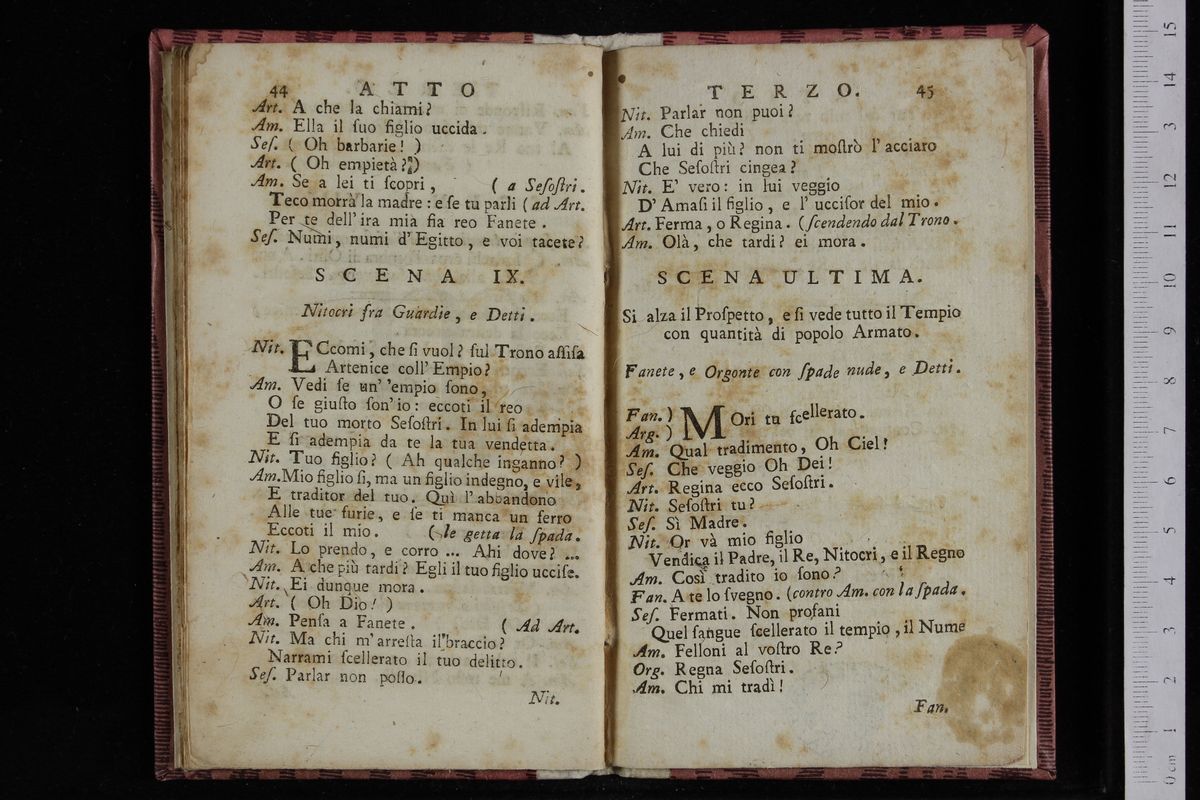 44 ATTO
Art. A che la chiami?
Am. Ella il ſuo figlio uccida.
Seſ. ( Oh barbarie! )
Art. ( Oh empietà? )
Am. Se a lei ti ſcopri, ( a Seſoſtri.
Teco morrà la madre: e ſe tu parli ( ad Art.
Per te dell' ira mia fia reo Fanete.
Seſ. Numi, numi d' Egitto, e voi tacete?
SCENA IX.
Nitocri fra Guardie, e Detti.
Nit. ECcomi, che ſi vuol? ſul Trono aſſiſa
Artenice coll' Empio?
Am. Vedi ſe un' 'empio ſono,
O ſe giuſto ſon' io: eccoti il reo
Del tuo morto Seſoſtri. In lui ſi adempia
E ſi adempia da te la tua vendetta.
Nit. Tuo figlio? ( Ah qualche inganno? )
Am. Mio figlio ſi, ma un figlio indegno, e vile,
E traditor del tuo. Quì l' abbandono
Alle tue furie, e ſe ti manca un ferro
Eccoti il mio. ( le getta la ſpada.
Nit. Lo prendo, e corro ... Ahi dove? ...
Am. A che più tardi? Egli il tuo figlio ucciſe.
Nit. Ei dunque mora.
Art. ( Oh Dio! )
Am. Penſa a Fanete. ( Ad Art.
Nit. Ma chi m' arreſta il braccio?
Narrami ſcellerato il tuo delitto.
Seſ. Parlar non poſſo.
Nit.
TERZO. 45
Nit. Parlar non puoi?
Am. Che chiedi
A lui di più? non ti moſtrò l' acciaro
Che Seſoſtri cingea?
Nit. E' vero: in lui veggio
D' Amaſi il figlio, e l' ucciſor del mio.
Art. Ferma, o Regina. (ſcendendo dal Trono.
Am. Olà, che tardi? ei mora.
SCENA ULTIMA.
Si alza il Proſpetto, e ſi vede tutto il Tempio
con quantità di popolo Armato.
Fanete, e Orgonte con ſpade nude, e Detti.
Fan. ) MOri tu ſcellerato.
Arg. )
Am. Qual tradimento, Oh Ciel!
Seſ. Che veggio Oh Dei!
Art. Regina ecco Seſoſtri.
Nit. Seſoſtri tu?
Seſ. Sì Madre.
Nit. Or và mio figlio
Vendica il Padre, il Re, Nitocri, e il Regno
Am. Così tradito io ſono?
Fan. A te lo ſvegno. (contro Am. con la ſpada.
Seſ. Fermati. Non profani
Quel ſangue ſcellerato il tempio, il Nume
Am. Felloni al voſtro Re?
Org. Regna Seſoſtri.
Am. Chi mi tradì!
Fan.
0 cm 1 2 3 4 5 6 7 8 9 10 11 12 3 14 15